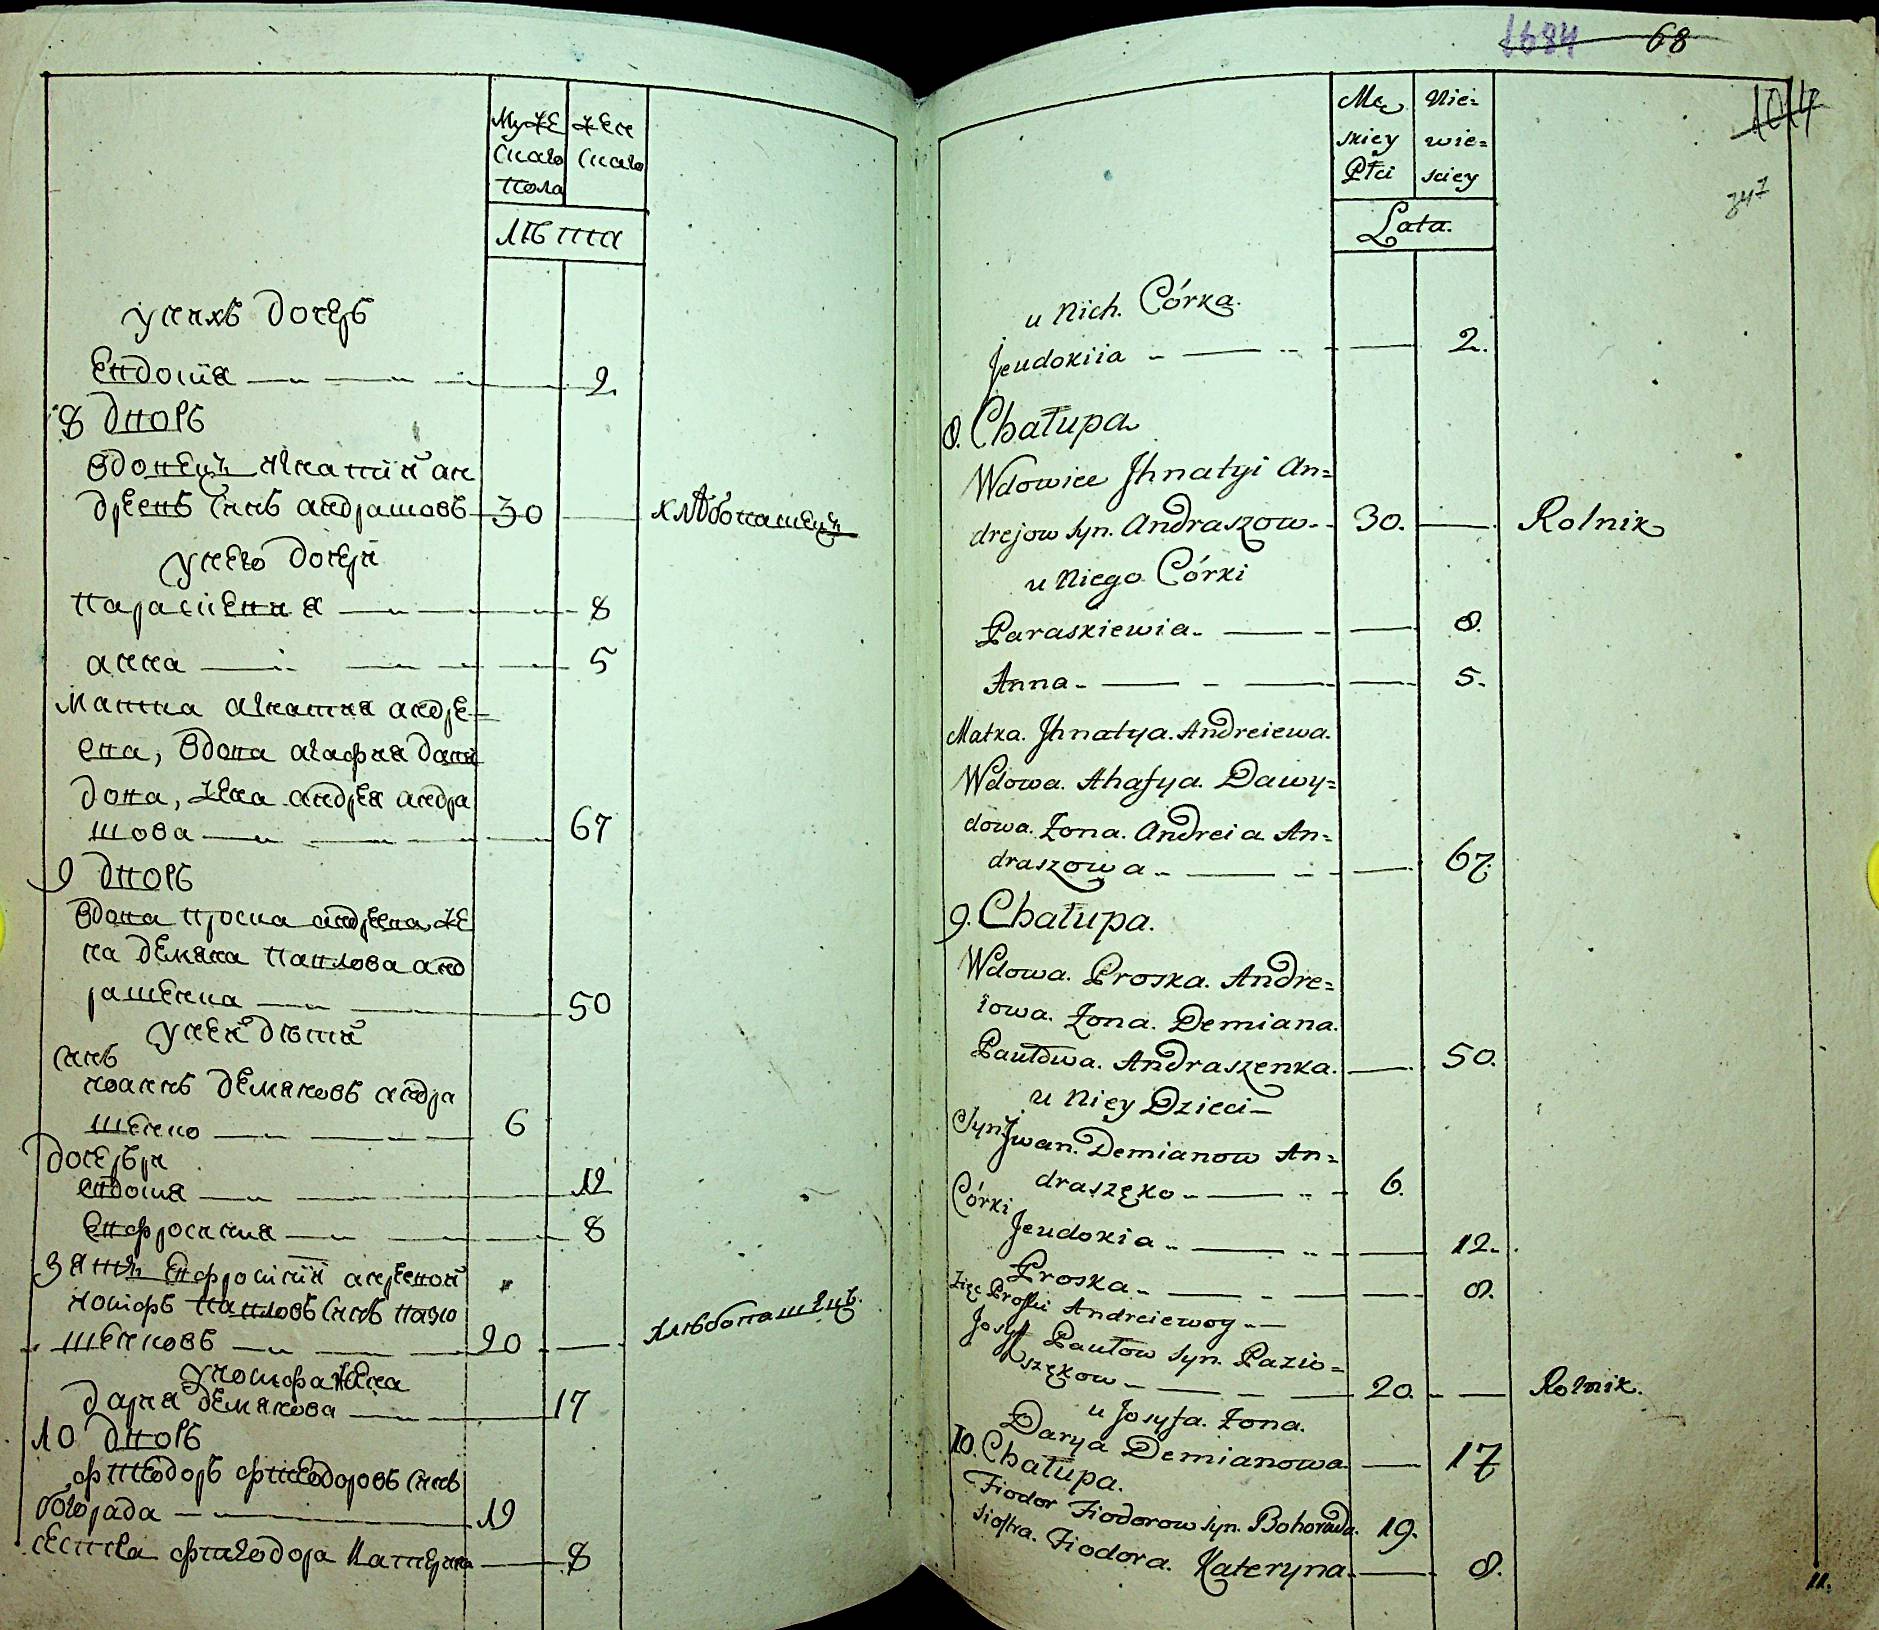 Муже
скаго
пола
жен
скаго
лѣта
у нихъ дочерь
Евдокія 2
8 дворъ
Вдовецъ Игнатій ан
дреевъ сынъ андрашовъ 30 хлѣбопашецъ
у него дочери
параскевия 8
анна 5
Матка игнатия андре
ева, вдова агафия давы
дова, жена андрея андра
шова 67
9 дворъ
вдова проска андреева же
на демяна павлова анд
рашенка 50
у ней дѣти
сынъ
иоаннъ демяновъ андра
шенко 6
дочерьри
евдокия 12
Евфросиния 8
зять Евфросиній андреевой
иосифъ павловъ сынъ пазю
шенковъ 20 хлѣбопашецъ
у иосифа жена
дария демянова 17
10 дворъ
фтеодоръ фтеодоровъ сынъ
богорада 19
сестра фтеодора Катерина 8
1684 68
1014
347
Mę
skiey
Płci
Nie=
wie=
sciey
Lata.
u Nich. Córka.
Jeudokiia 2.
8. Chałupa
Wdowiec Jhnatyi An=
drejow syn. Andraszow 30. Rolnik
u Niego Córki
Paraskiewia 8.
Anna 5.
Matka. Jhnatya. Andreiewa.
Wdowa. Ahafya. Dawy=
dowa. Zona. Andreia An=
draszowa 67.
9. Chałupa.
Wdowa. Proska. Andre=
iowa. Zona. Demiana.
Pautowa. Andraszenka. 50.
u Niey Dzieci
Syn Jwan. Demianow An=
draszęko 6.
Córki
Jeudokia 12.
Proska 8.
Zięc Proski Andreiewoy
Josyf Pautow syn. Pazio=
szękow 20. Rolnik.
u Josyfa. Zona.
Darya Demianowa 17
10. Chałupa.
Fiodor Fiodorow syn. Bohorada. 19.
siostra. Fiodora. Kateryna. 8.
11.